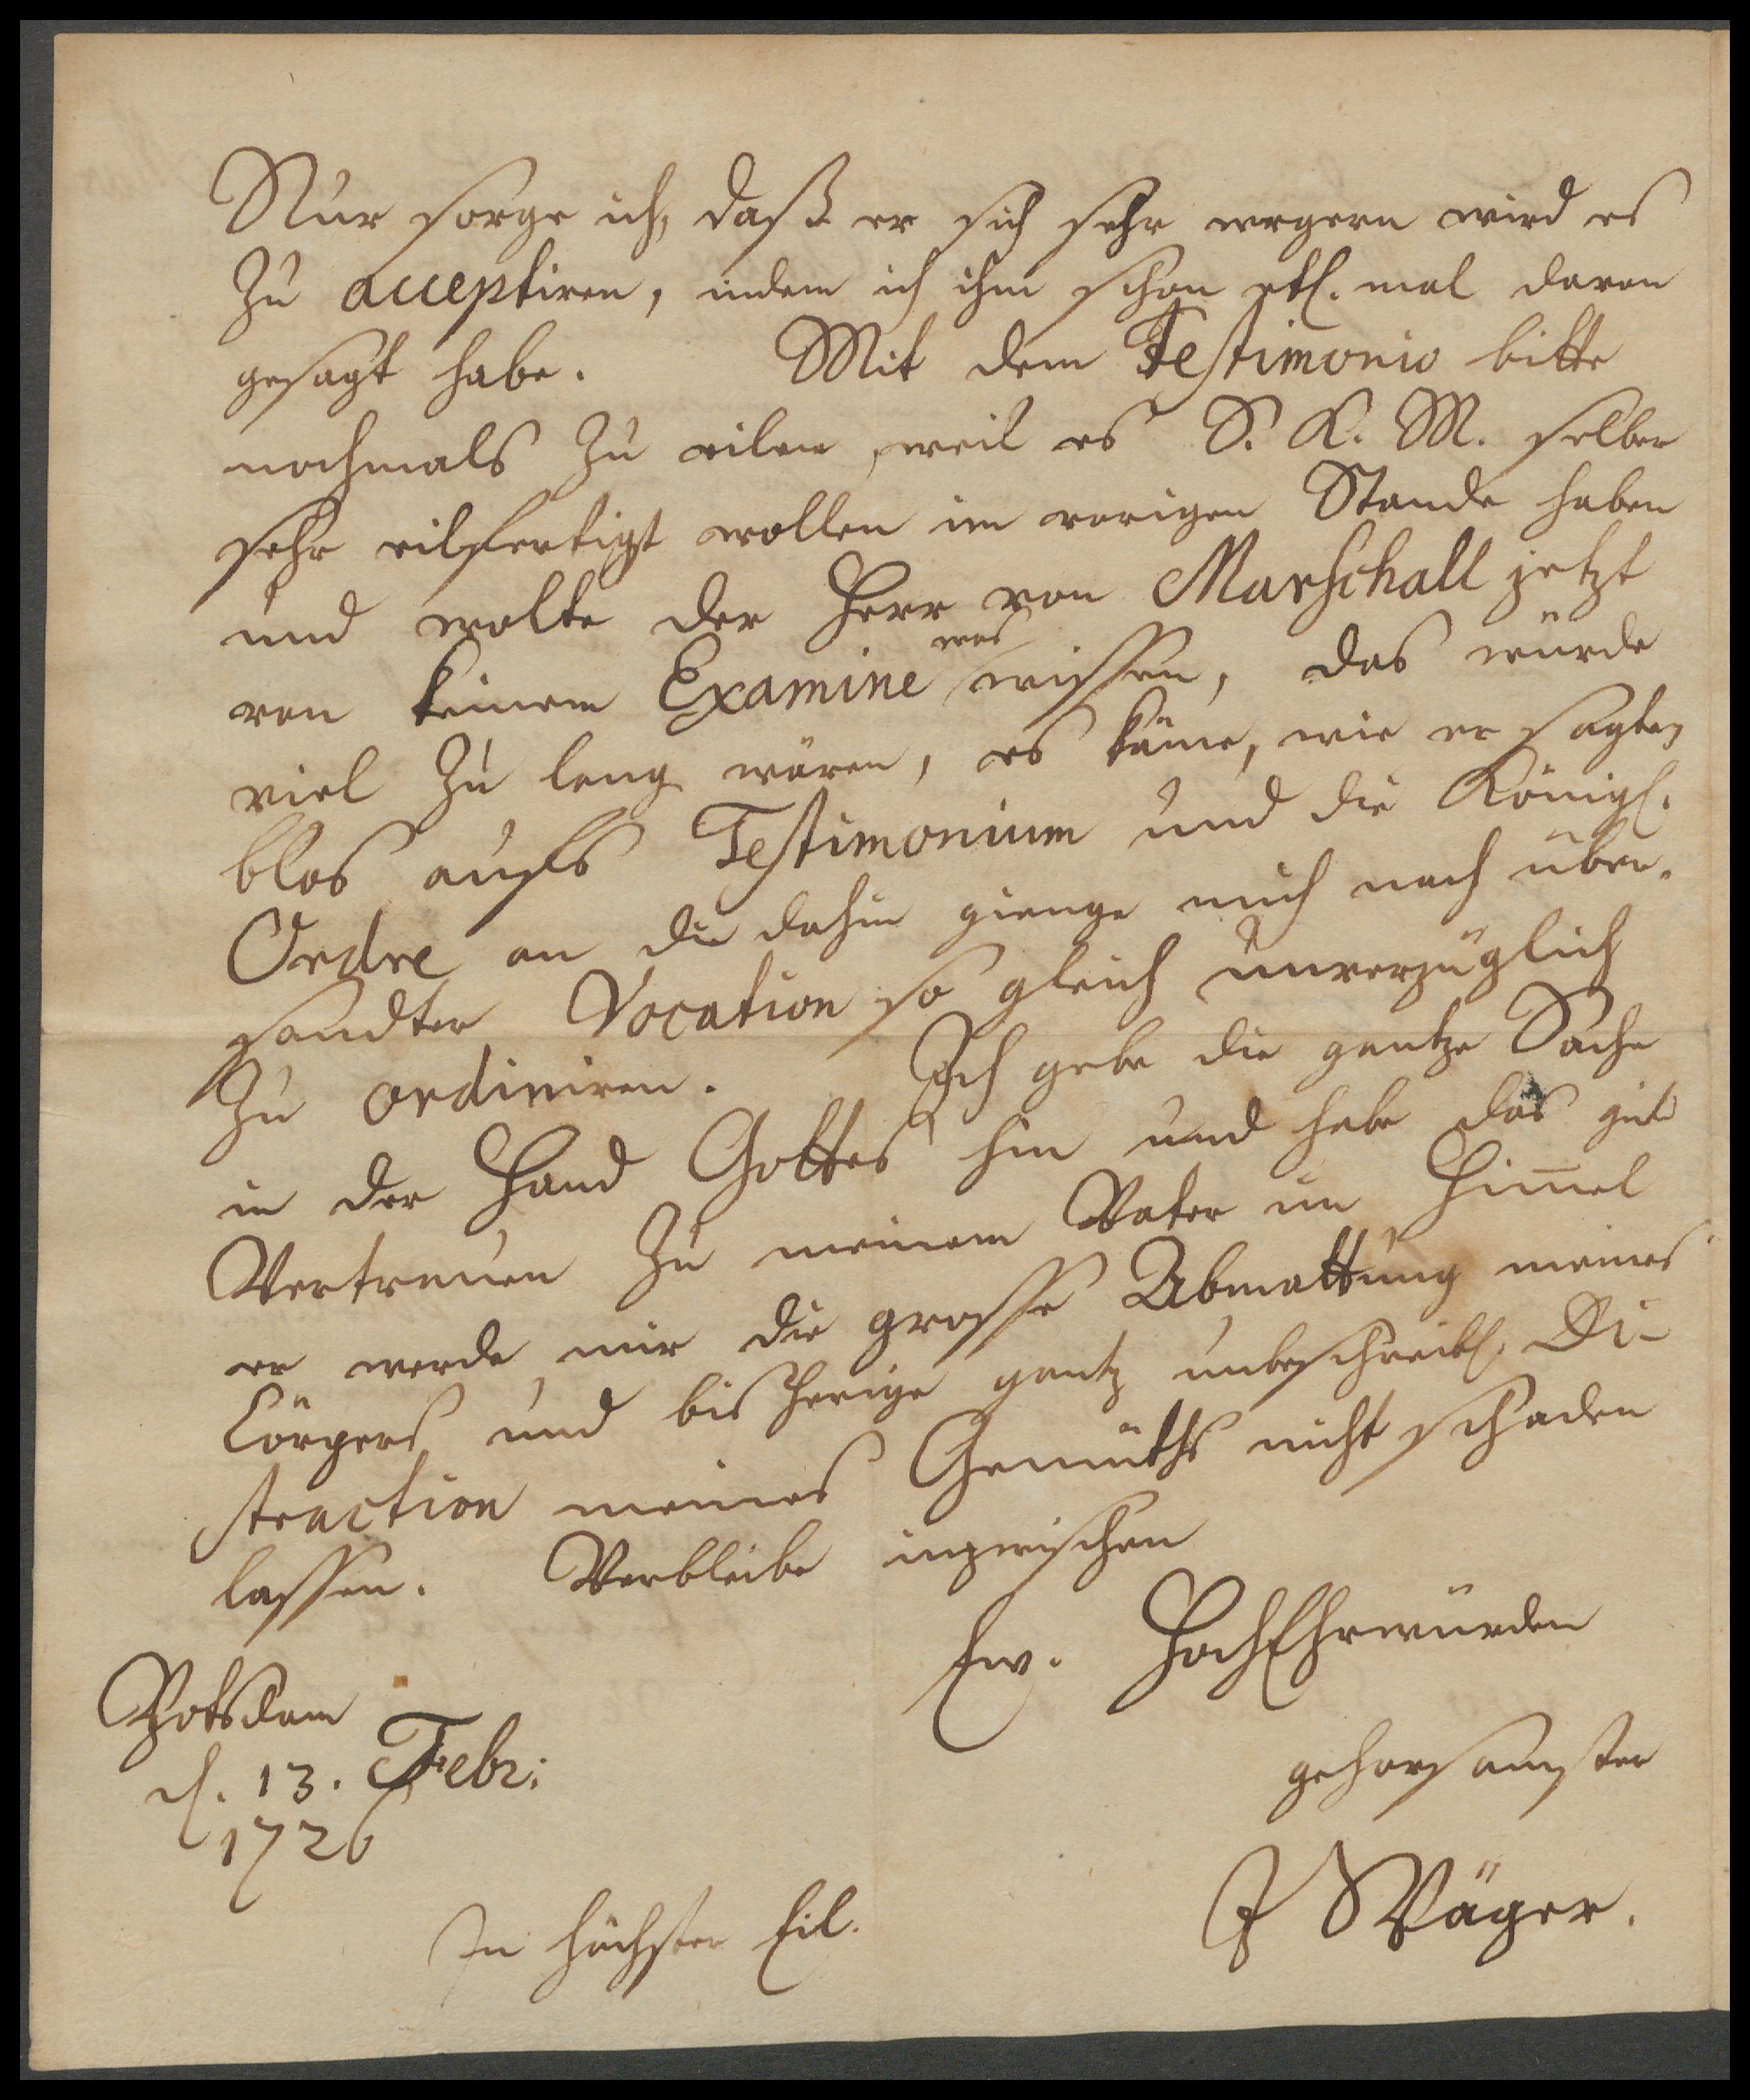 Nur sorge ich, daß er sich sehr wegern wird es
zu acceptiren, indem ich ihm schon etl. mal davon
gesagt habe. Mit dem Testimonio bitte
nochmals zu eilen, weil es S. K. M. selber
sehr eilfertigst wollen im vorigen Stande haben
und wolte der Herr von Marschall jetzt
von keinem Examine was wissen, das würde
viel zu lang wären, es käme, wie er sagte,
blos aufs Testimonium und die Königl.
Ordre an die dahin gienge mich nach über-
sandter Vocation so gleich unverzüglich
zu ordiniren. Ich gebe die gantze Sache
in der Hand Gottes hin und habe das gute
Vertrauen zu meinem Vater im Him̄el
er werde mir die grosse Abmattung meines
Cörpers und bisherige gantz unbeschreibl. Di-
straction meines Gemüths nicht schaden
lassen. Verbleibe inzwischen
Ew. HochEhrwürden
Potsdam
d. 13. Febr:
1726
gehorsamster
In höchster Eil.